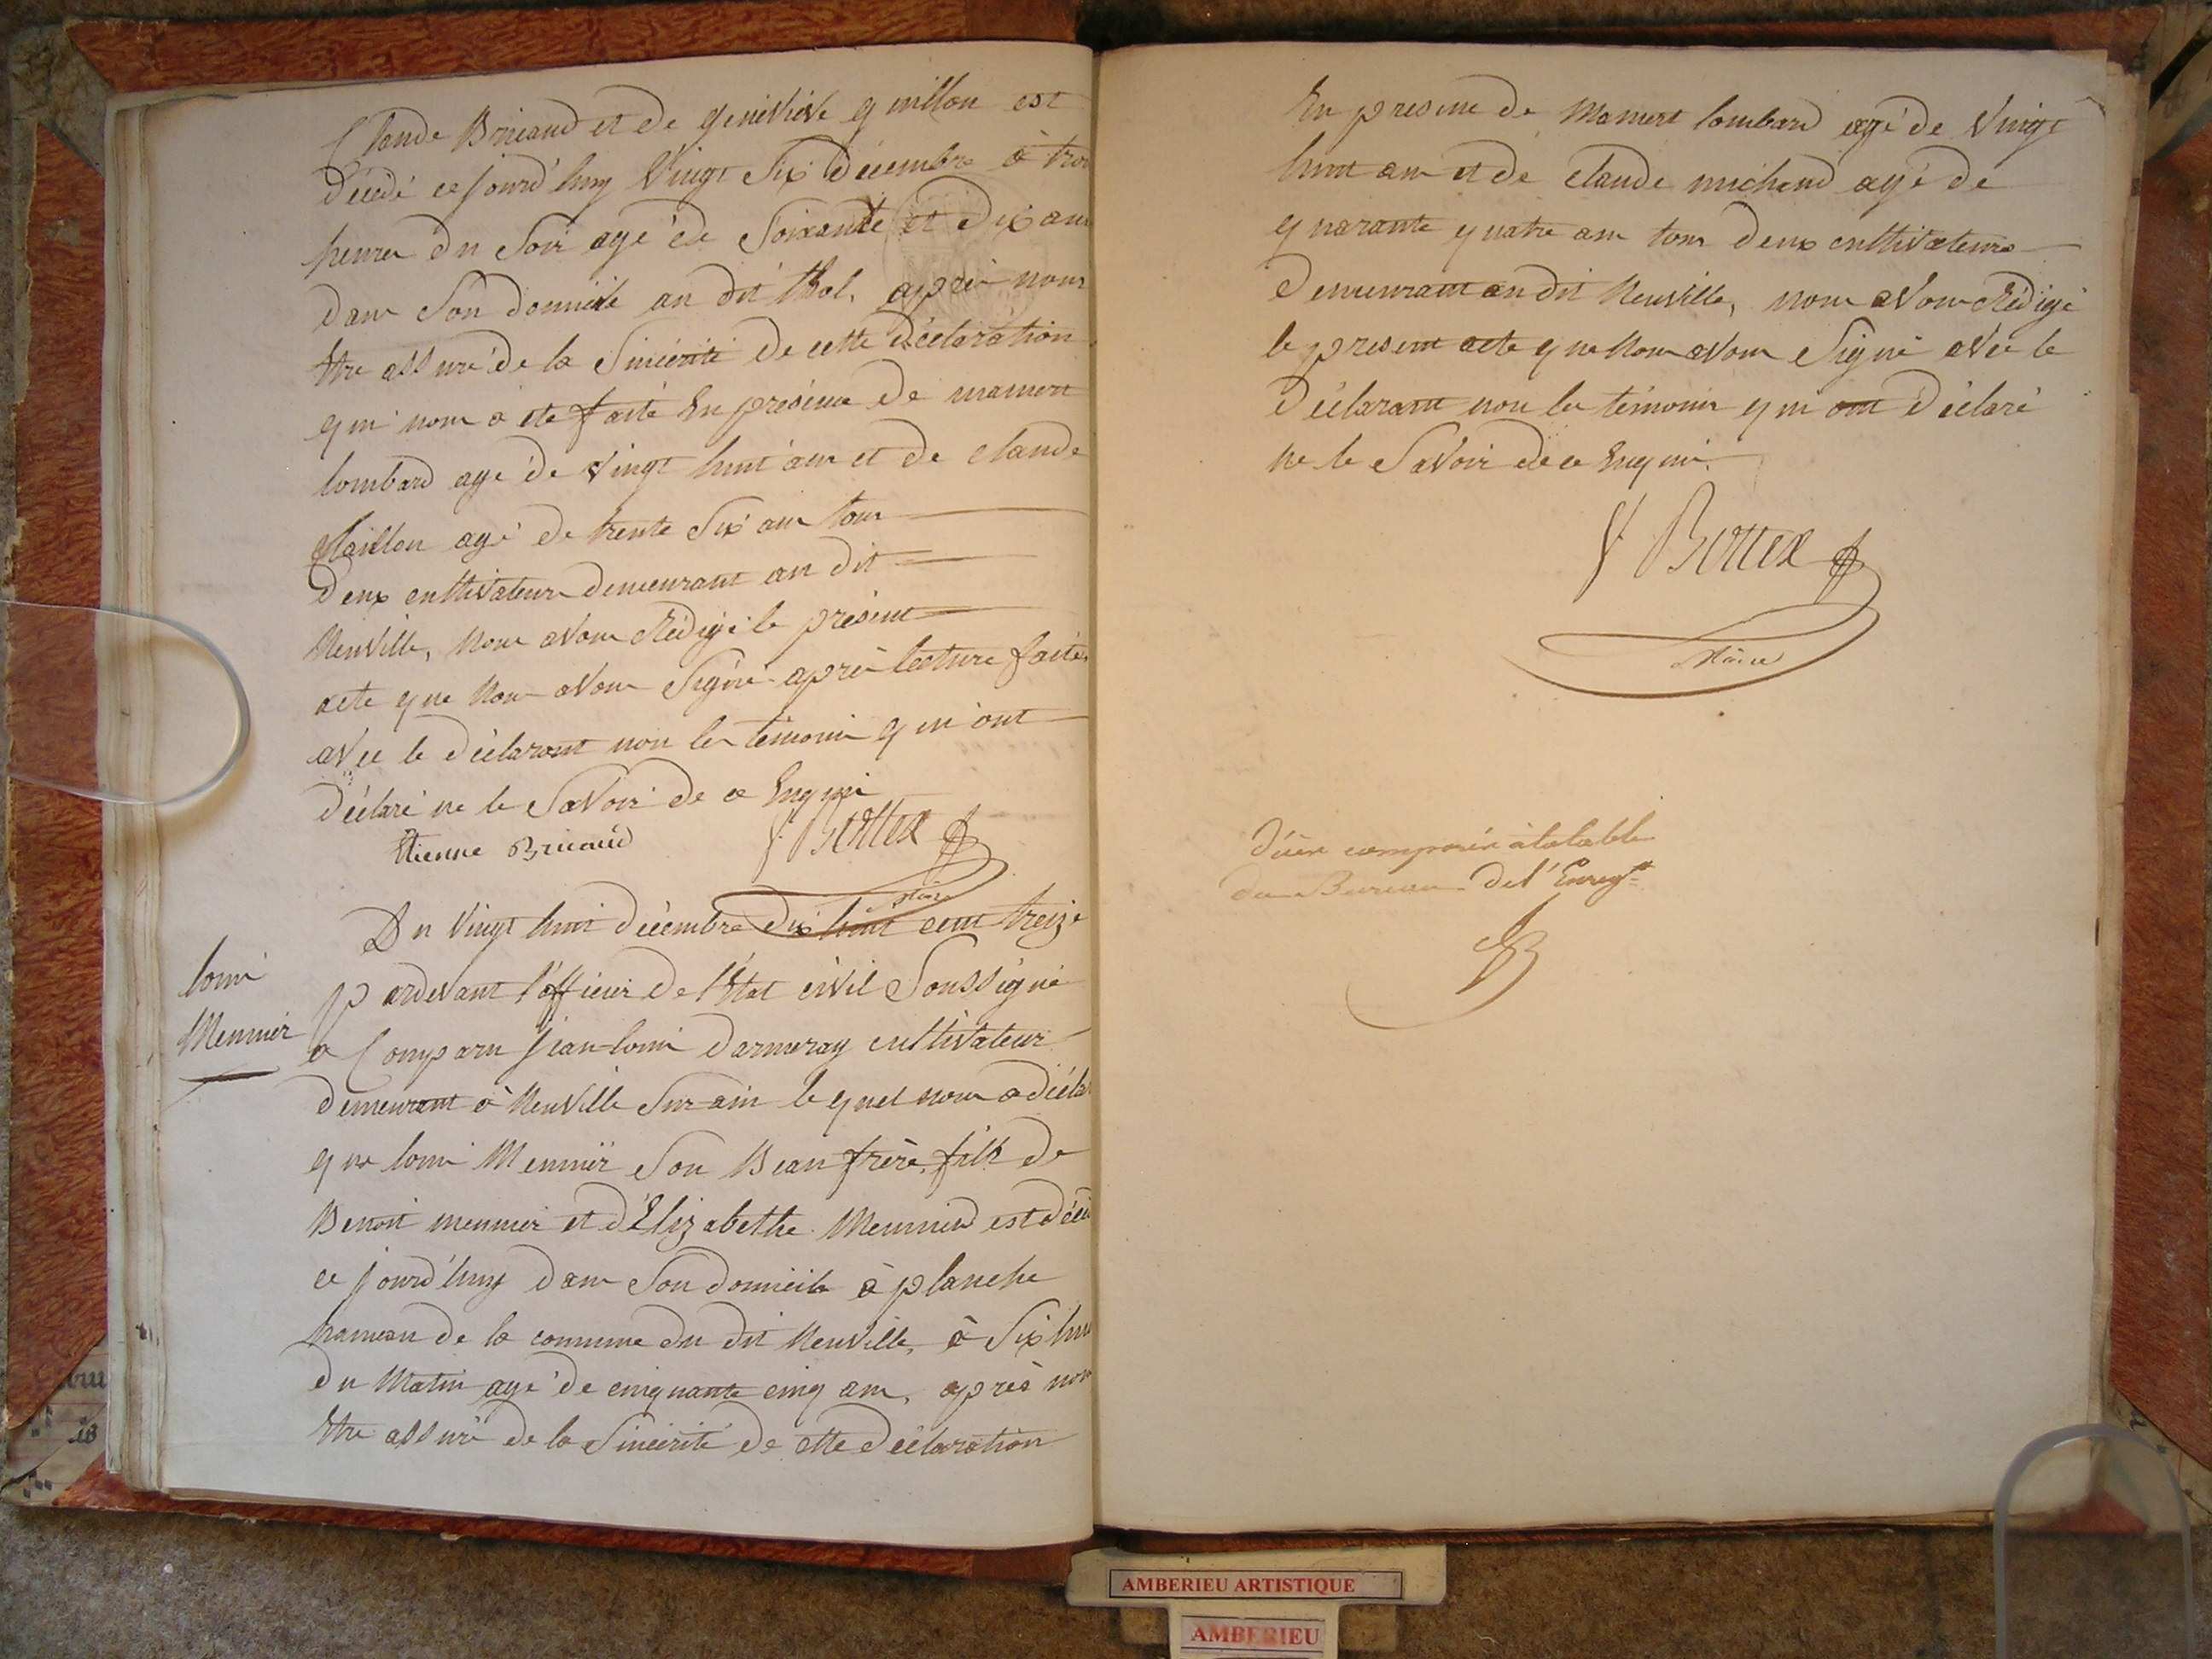 Claude Bricaud et de genevieve guillon est
décédé ce jourd'huy Vingt Six décembre à troi
heures du Soir agé de Soixante et Dix ans
dans Son domicile au dit thol, après nous
Etre assuré de la Sincérité De cette déclaration
qui nous a ete faite En présence De mamert
lombard agé de Vingt huit ans et de claude
agé de trente Six ans tous
Deux cultivateurs demeurant au dit
Neuville, Nous avons Rédigé le présent
acte que Nous avons Signé après lecture faite,
avec le déclarant non les témoins qui ont
déclaré ne le Savoir de ce Enquis
Etienne Bricaud Bottex
Maire
Du Vingt huit décembre dix huit cent treize
louis
Meunier
pardevant l'officier De l'Etat civil Soussigné
a Comparu Jean-louis darmeray cultivateur
demeurant à Neuville Sur ain lequel nous a décla
que louis Meunier Son Beau frère, fils de
Benoit meunier et d'Elizabethe Meunier est décé
ce jourd'huy dans Son domicile à planche
hameau de la commune du dit Neuville, à Six heu
du Matin agé de cinquante cinq ans, après nous
Etre assuré de la Sincérité De cette déclaration
En presence de Mamert lombard agé de Vingt
huit ans et de claude michaud agé de
quarante quatre ans tous deux cultivateurs
Demeurant au dit Neuville, nous avons Rédigé
le present acte que Nous avons Signé avec le
déclarant non les témoins qui ont déclaré
ne le Savoir de ce Enquis.
Bottex
Maire
décès comparés à la table
du Bureau de l'Enregt
AMBERIEU ARTISTIQUE
AMBERIEU